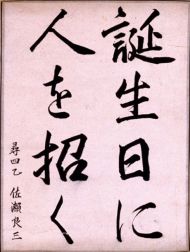 誕生日に
人を招く
尋四乙 佐瀬良三